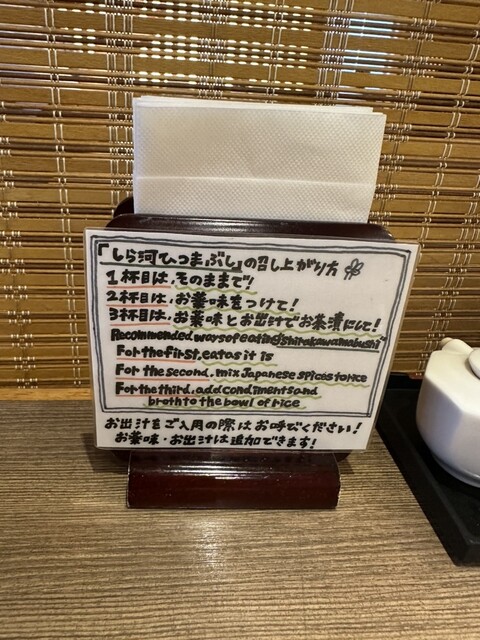 「しら河ひつまぶし」の召し上がり方
1杯目は、そのままで!
2杯目は、お薬味をつけて!
3杯目は、お薬味とお出汁でお茶漬にして!
Recommended ways of eating Shirakawamabushi
For the first, eat as it is
For the second, mix Japanese spices to rice
For the third, add condiments and
broth to the bowl of rice
お出汁をご入用の際はお呼びください!
お薬味・お出汁は追加できます!